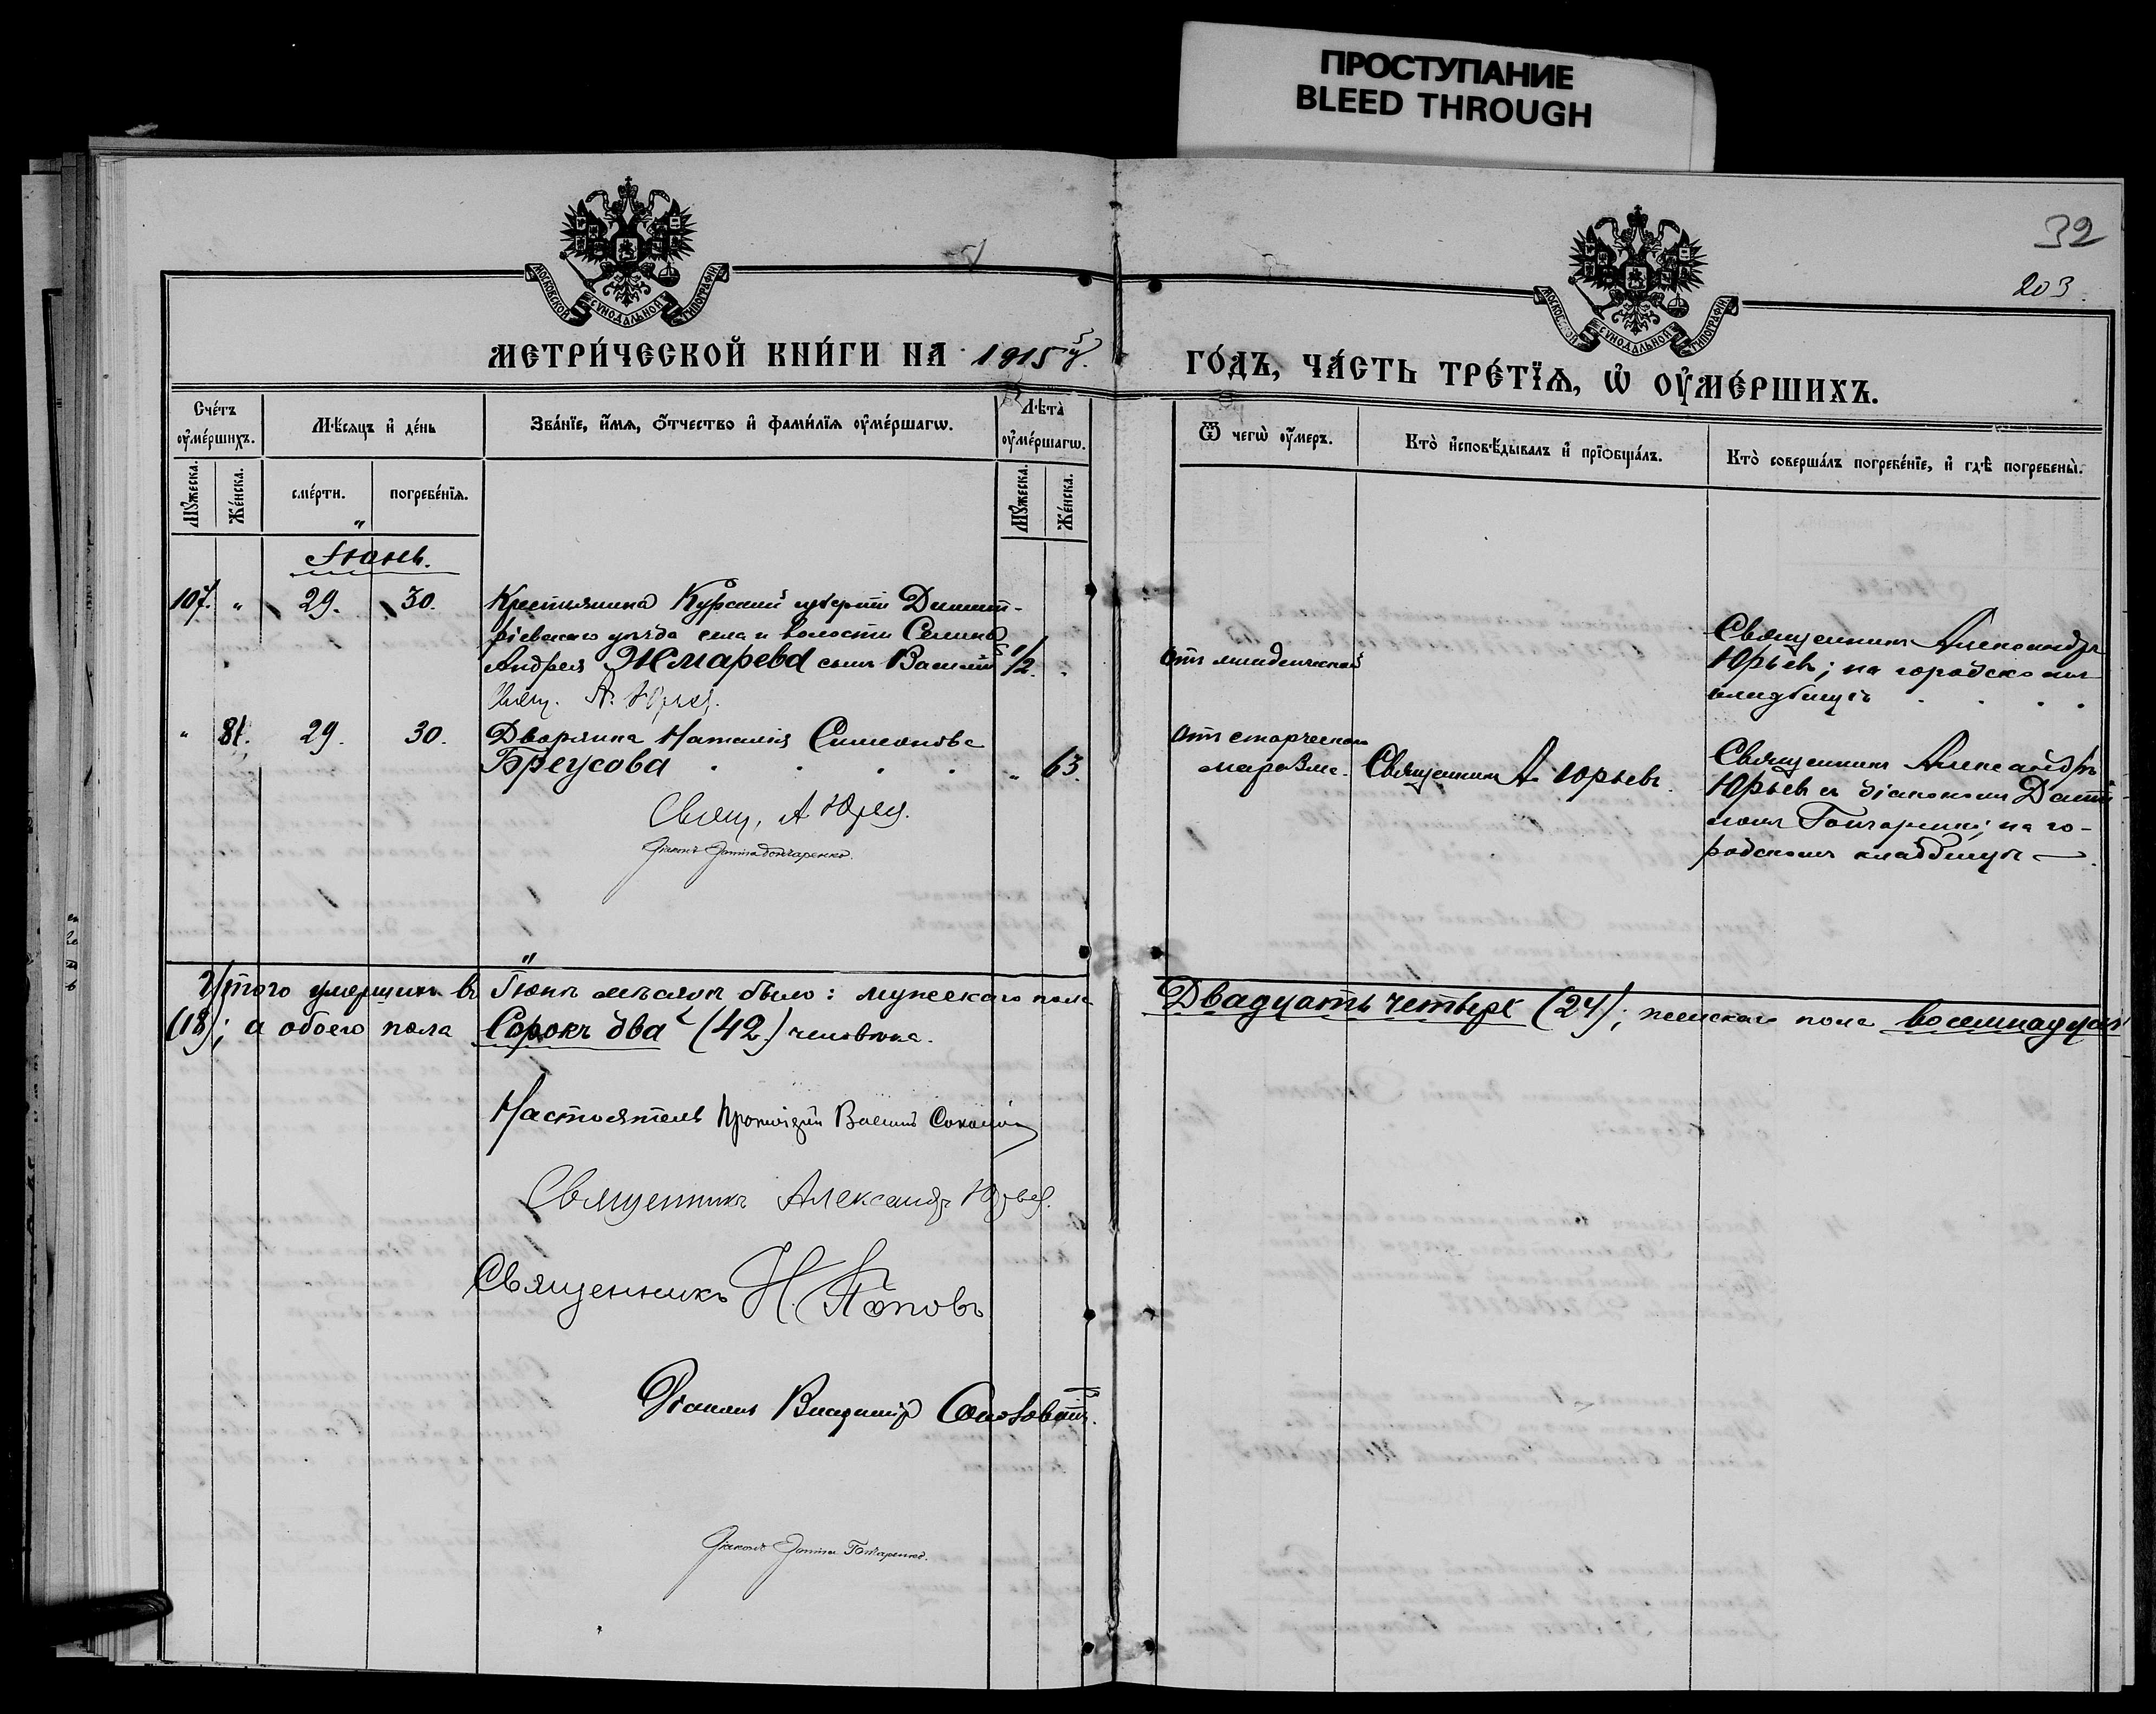 ПРОСТУПАНИЕ
BLEED THROUGH
32
203.
МОСКОВСКОЙ СѴНОДАЛЬНОЙ ТИПОГРАФІИ
МОСКОВСКОЙ СѴНОДАЛЬНОЙ ТИПОГРАФІИ
МЕТРИ́ЧЕСКОЙ КНИ́ГИ НА 1915й.
ГО́ДЪ, ЧА́СТЬ ТРЕ́ТЇѦ, Ѽ ОУ҆МЕ́РШИХЪ.
Сче́тъ оу҆ме́ршихъ.
Мꙋ́жеска.
Же́нска.
Мѣ́сяцъ и҆ де́нь
сме́рти.
погребе́нїѧ.
Зва́нїе, и҆́мѧ, ѻ҆́тчество и҆ фами́лїѧ оу҆ме́ршагѡ.
Лѣ́та̀ оу҆ме́ршагѡ.
Мꙋ́жеска.
Же́нска.
Ѿ чегѡ̀ оу҆́меръ.
Кто̀ и҆сповѣ́дывалъ и҆ прїѻбща́лъ.
Кто̀ соверша́лъ погребе́нїе, и҆ гдѣ̀ погребены̀.
Іюнь.
107. " 29. 30. Крестьянина Курской губерніи Димит-
ріевскаго уѣзда села и волости Селино
Андрея Жмарева сынъ Василій 1/2. "
Свящ. А. Юрьев.
Отъ младенческой
Священникъ Александръ
Юрьевъ; на городскомъ
кладбищѣ
" 81. 29. 30. Дворянка Наталія Симеонова
Бреусова " 63.
Свящ. А Юрьев.
Діаконъ Данiил Гончаренко.
Отъ старческаго
маразма. Священникъ А. Юрьевъ.
Священникъ Александръ
Юрьевъ съ діакономъ Дані
иломъ Гончаренко; на го-
родскомъ кладбищѣ
Итого умершихъ въ Іюнѣ мѣсяцѣ было: мужескаго пола Двадцать четыре (24); женскаго пола восемнадцать
(18); а обоего пола Сорокъ два (42) человѣка.
Настоятель Протоіерей Василій Соколов
Священникъ Александр Юрьев.
Священникъ Н. Поповъ
Діаконъ Владиміръ
Діаконъ Данiил Гончаренко.